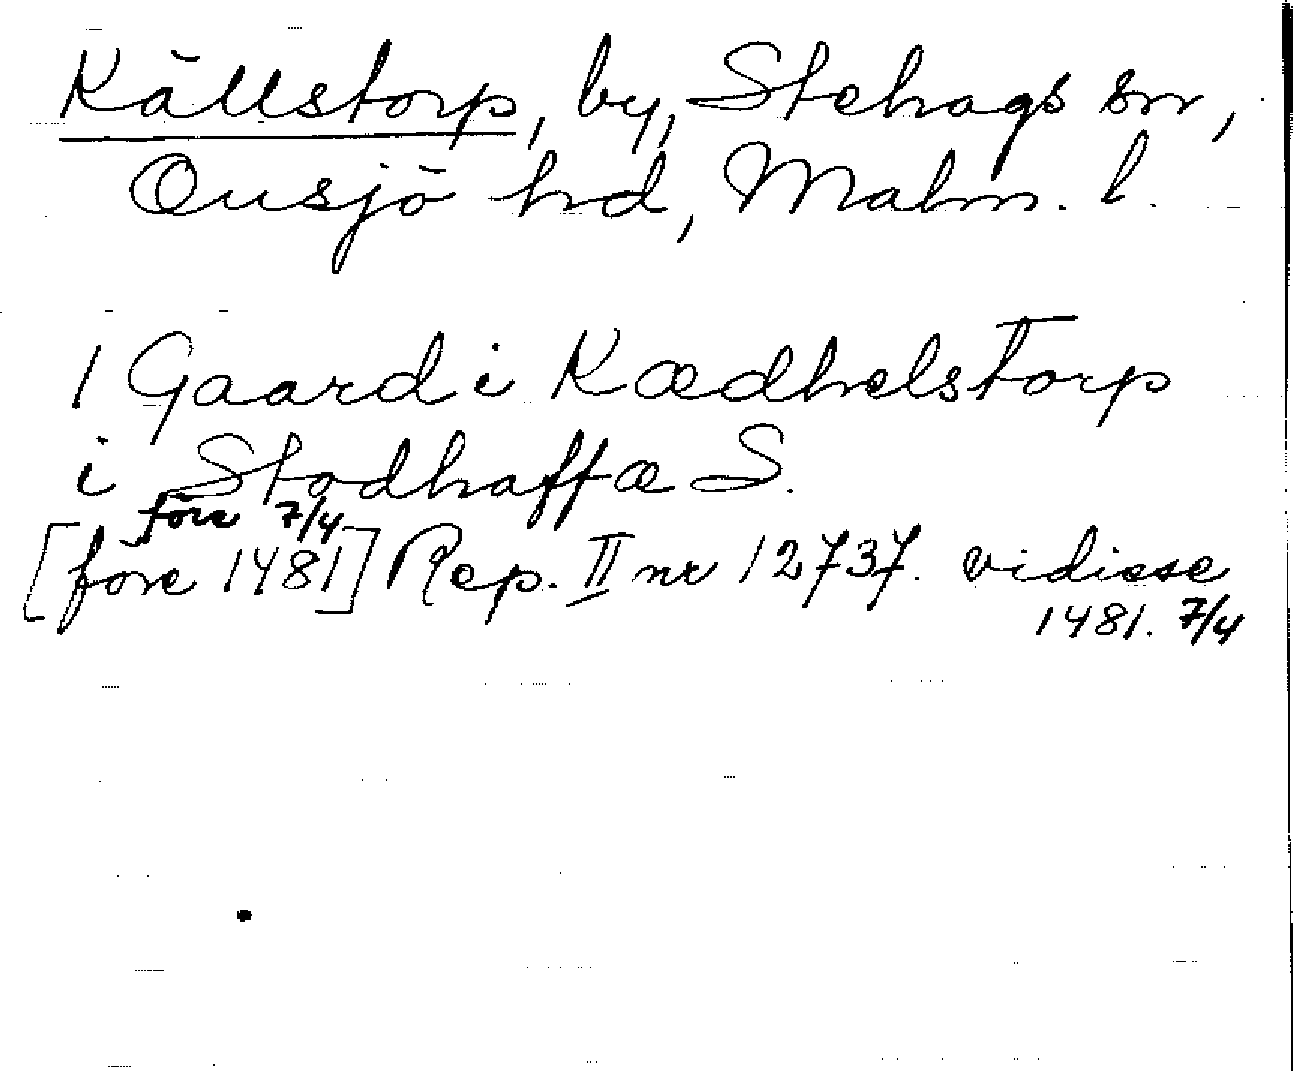 Källstorp, by, Stehags sn,
Onsjö hd, Malm. l.
1 Gaard i Kædhelstorp
i Stodhaffæ S.
före 7/4
[före 1481] Rep. II nr 12737. vidisse
1481. 7/4